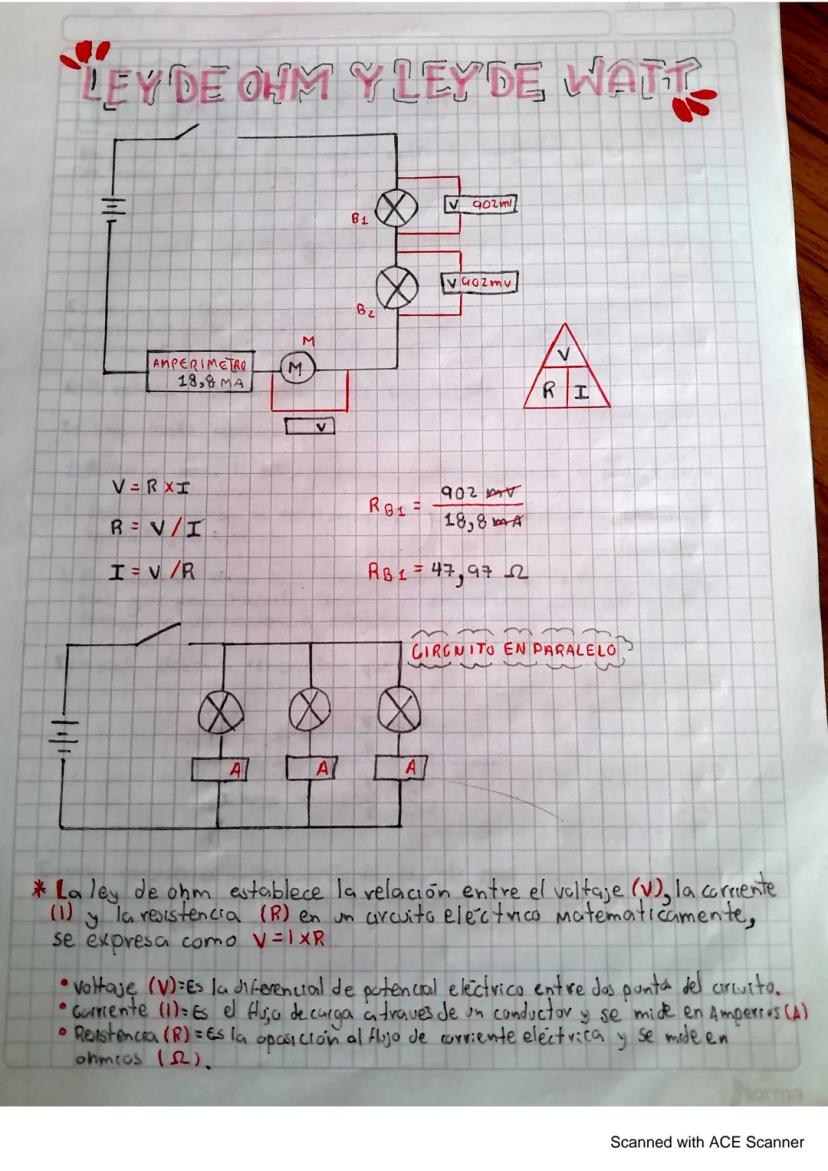 LEY DE OHM Y LEY DE WATT
B1
V 902mV
B2
V 902mV
M
AMPERIMETRO
18,8 MA
M
V
V
R I
V = R x I
R = V / I
I = V / R
RB1 = 902 mV
18,8 mA
RB1 = 47,97 Ω
CIRCUITO EN PARALELO
A A A
* La ley de ohm establece la relación entre el voltaje (V), la corriente
(I) y la resistencia (R) en un circuito eléctrico Matematicamente,
se expresa como V = I x R
• Voltaje (V) = Es la diferencial de potencial eléctrico entre dos punta del circuito.
• Corriente (I) = Es el flujo de carga a traves de un conductor y se mide en Amperios (A)
• Resistencia (R) = Es la oposición al flujo de corriente eléctrica y se mide en
ohmios (Ω).
Norma
Scanned with ACE Scanner